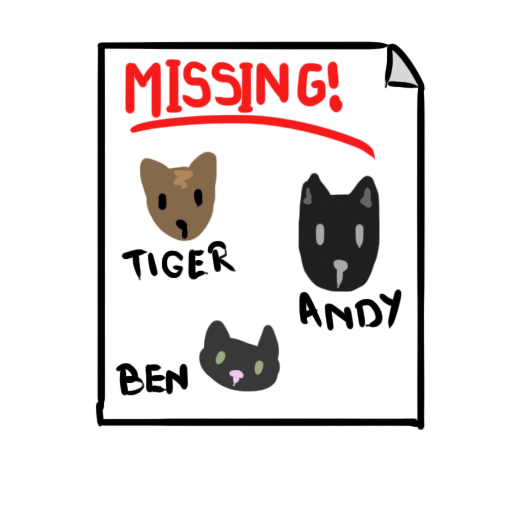 MISSING!
TIGER
ANDY
BEN